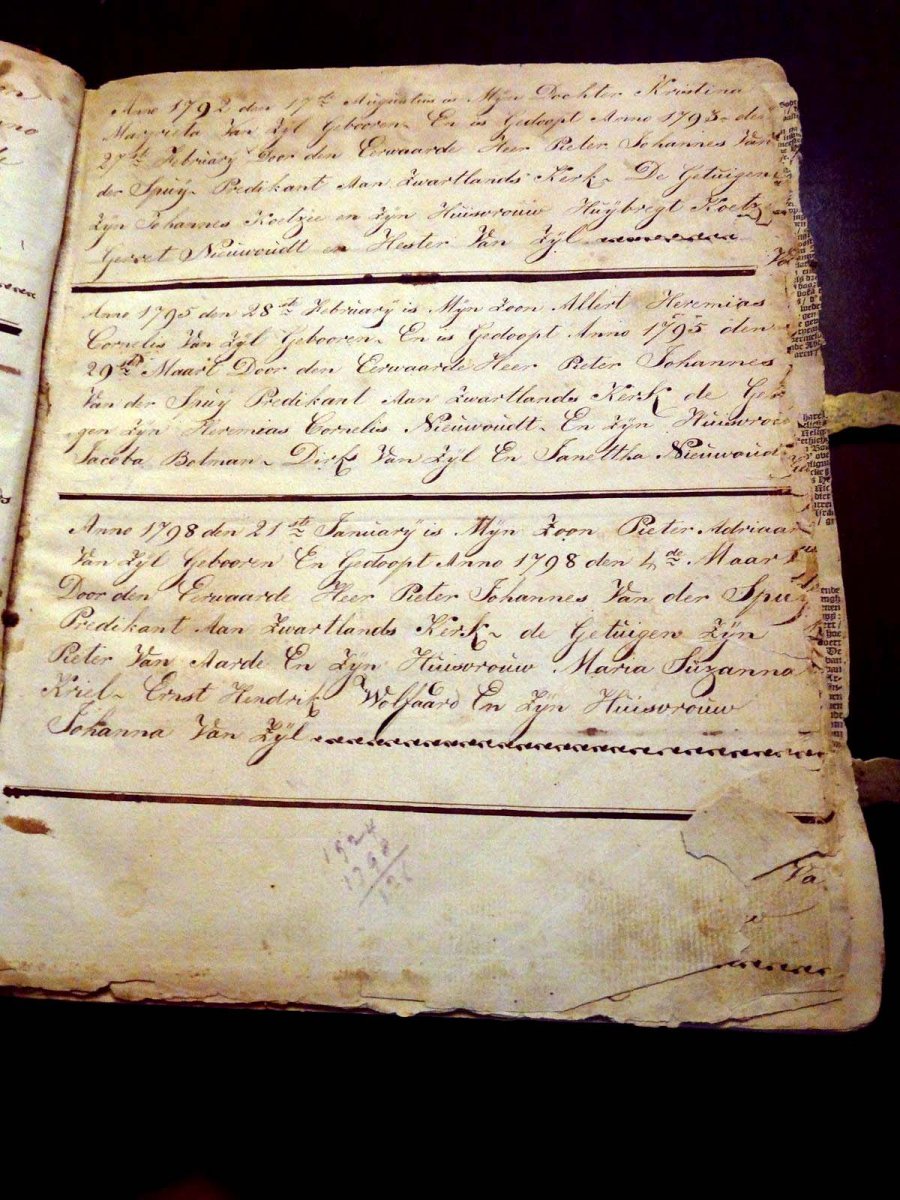 Anno 1792 den 17te Augustus is Mijn Dochter Kristina
Magrieta Van Zÿl Gebooren En is Gedoopt Anno 1793 den
27te Februarÿ Door den Eerwaarde Heer Pieter Johannes Van
der Spuÿ Predikant Aan Zwartlands Kerk De Getuigen
Zÿn Johannes Koetzee en Zÿn Huisvrouw Huÿbregt Koetz
Gerret Nieuwoudt en Hester Van Zÿl
Anno 1795 den 28ste Februarÿ is Mÿn Zoon Albert Heremias
Cornelis Van Zÿl Gebooren En is Gedoopt Anno 1795 den
29ste Maart Door den Eerwaarde Heer Pieter Johannes
Van der Spuÿ Predikant Aan Zwartlands Kerk de Getui
gen Zÿn Heremias Cornelis Nieuwoudt En Zÿn Huisvrou
Jacoba Botman Dirk Van Zÿl En Janettha Nieuwoud
Anno 1798 den 21ste Januarÿ is Mÿn Zoon Pieter Adriaan
Van Zÿl Gebooren En Gedoopt Anno 1798 den 4de Maart
Door den Eerwaarde Heer Pieter Johannes Van der Spuÿ
Predikant Aan Zwartlands Kerk de Getuigen Zÿn
Pieter Van Aarde En Zÿn Huisvrouw Maria Suzanna
Kriel Ernst Hendrik Wolfaard En Zÿn Huisvrouw
Johanna Van Zÿl
1924
1798
126
Va